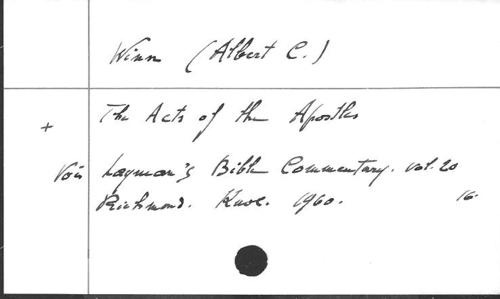 Winn (Albert C.)
+ The Acts of the Apostles
Voir Layman's Bible Commentary. vol. 20
Richmond. Knox. 1960. 16